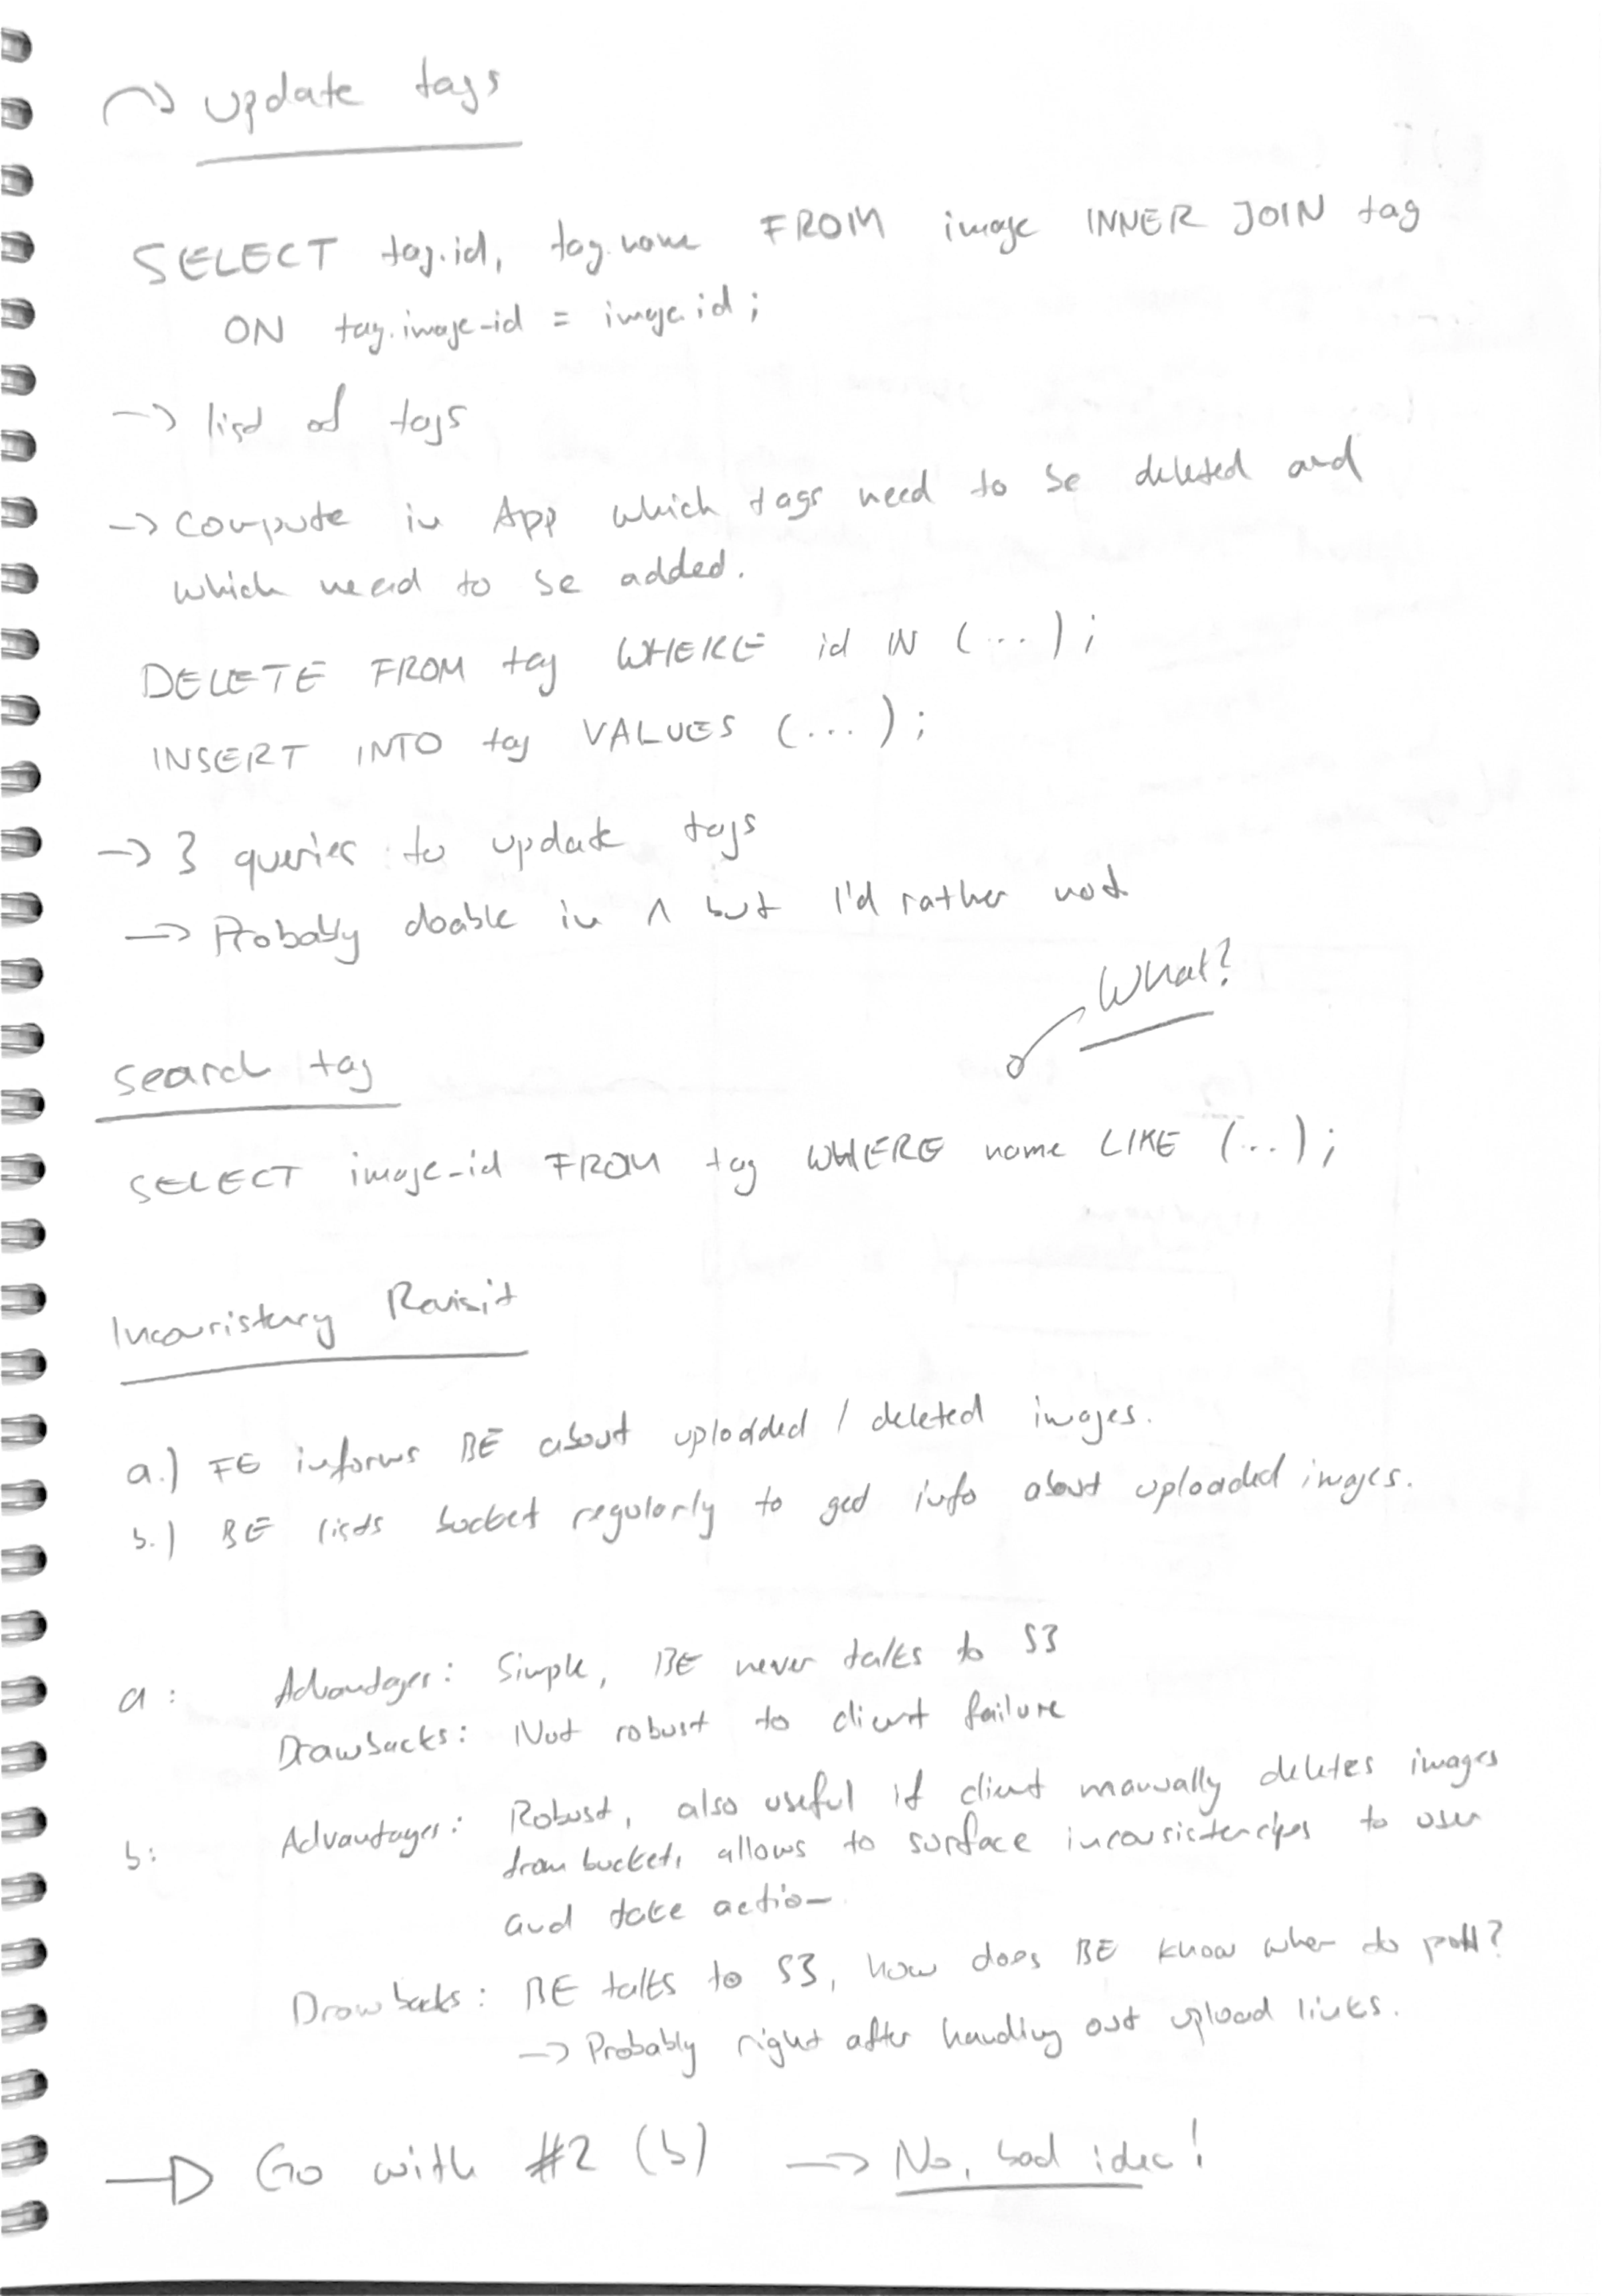 ~> update tags
SELECT tag.id, tag.name FROM image INNER JOIN tag
ON tag.image_id = image.id;
-> list of tags
-> compute in App which tags need to be deleted and
which need to be added.
DELETE FROM tag WHERE id IN (...);
INSERT INTO tag VALUES (...);
-> 3 queries to update tags
-> Probably doable in 1 but I'd rather not
What?
search tag
SELECT image_id FROM tag WHERE name LIKE (...);
Inconsistency Revisit
a.) FE informs BE about uploaded / deleted images.
b.) BE lists bucket regularly to get info about uploaded images.
a: Advantages: Simple, BE never talks to S3
Drawbacks: Not robust to client failure
b: Advantages: Robust, also useful if client manually deletes images
from bucket, allows to surface inconsistencies to user
and take action
Drawbacks: BE talks to S3, how does BE know when to poll?
-> Probably right after handing out upload links.
-> Go with #2 (b) -> No, bad idea!